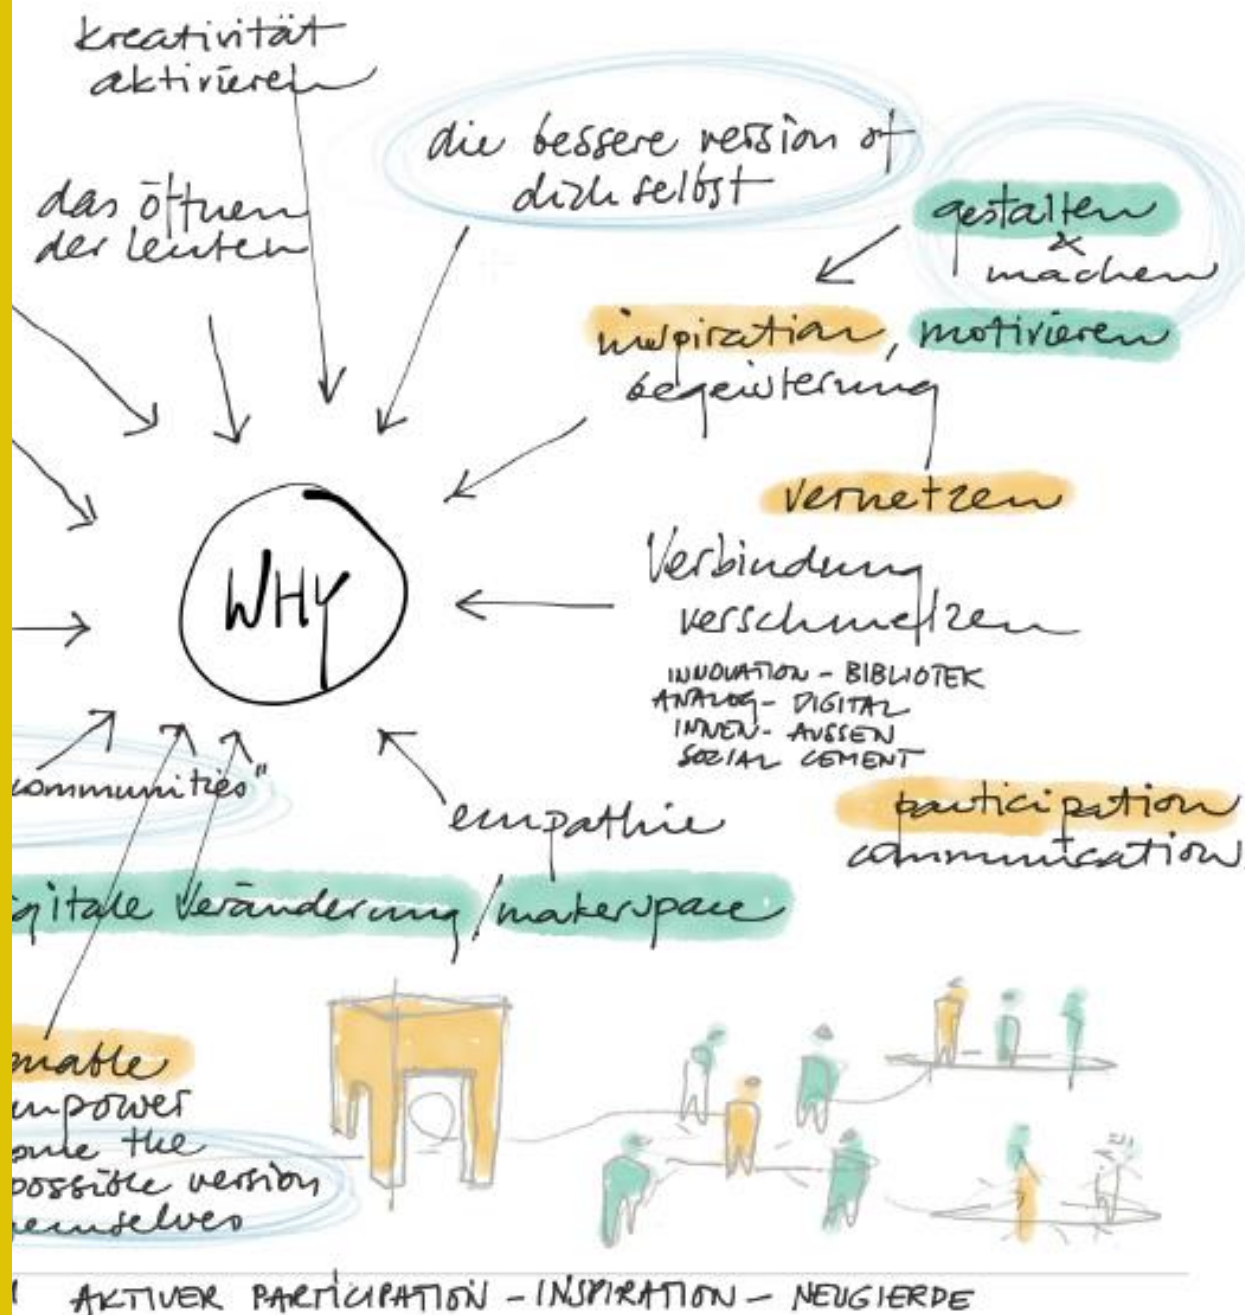 kreativität
aktivieren
die bessere version of
dich selbst
das öffnen
der leuten
gestalten
&
machen
inspiration, motivieren
begeisterung
vernetzen
WHY
Verbindung
verschmelzen
INNOVATION - BIBLIOTEK
ANALOG - DIGITAL
INNEN - AUSSEN
SOZIAL CEMENT
communities"
empathie
participation
communication
gitale Veränderung / makerspace
enable
empower
the
possible version
themselves
AKTIVER PARTICIPATION - INSPIRATION - NEUGIERDE